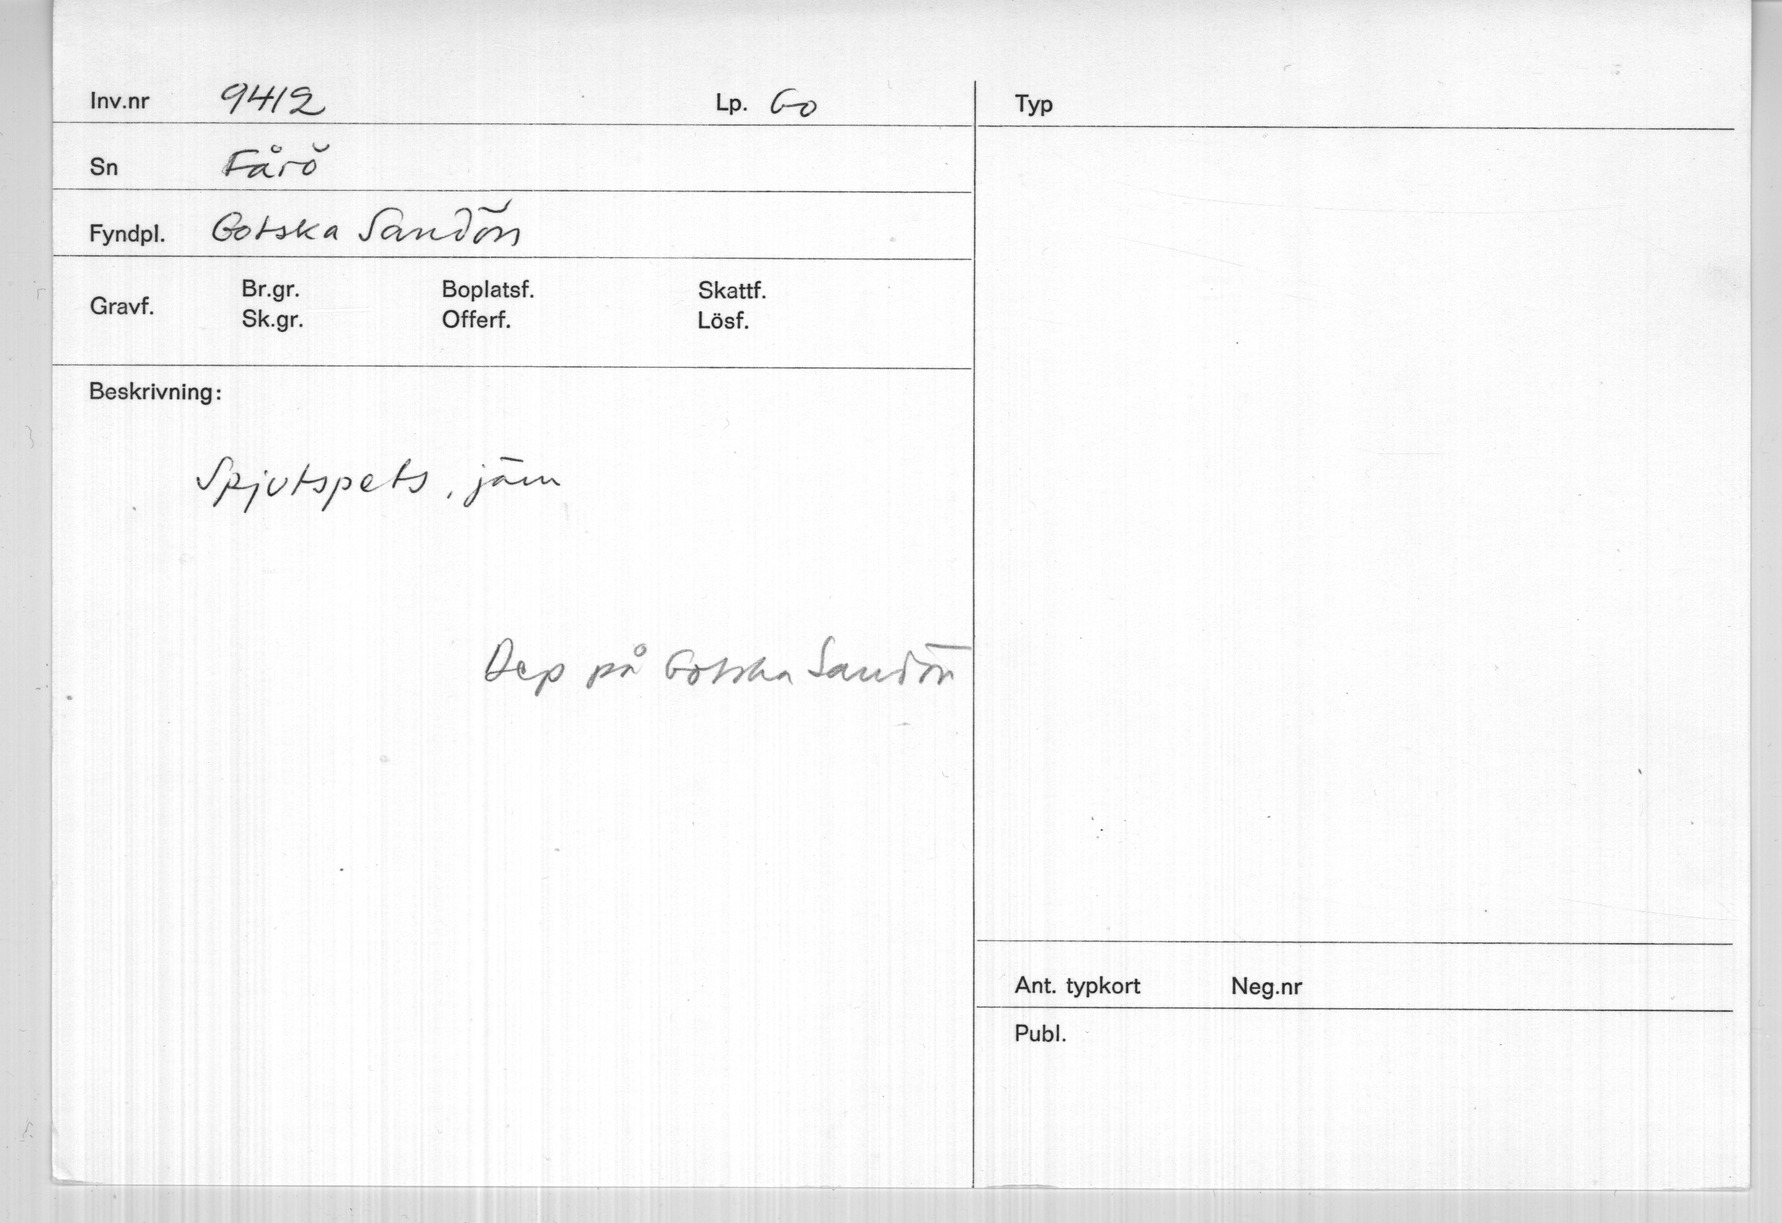 Inv.nr 9412 Lp. Go
Sn Fårö
Fyndpl. Gotska Sandön
Gravf. Br.gr. Boplatsf. Skattf.
Sk.gr. Offerf. Lösf.
Beskrivning:
Spjutspets, järn
Dep på Gotska Sandön
Typ
Ant. typkort Neg.nr
Publ.